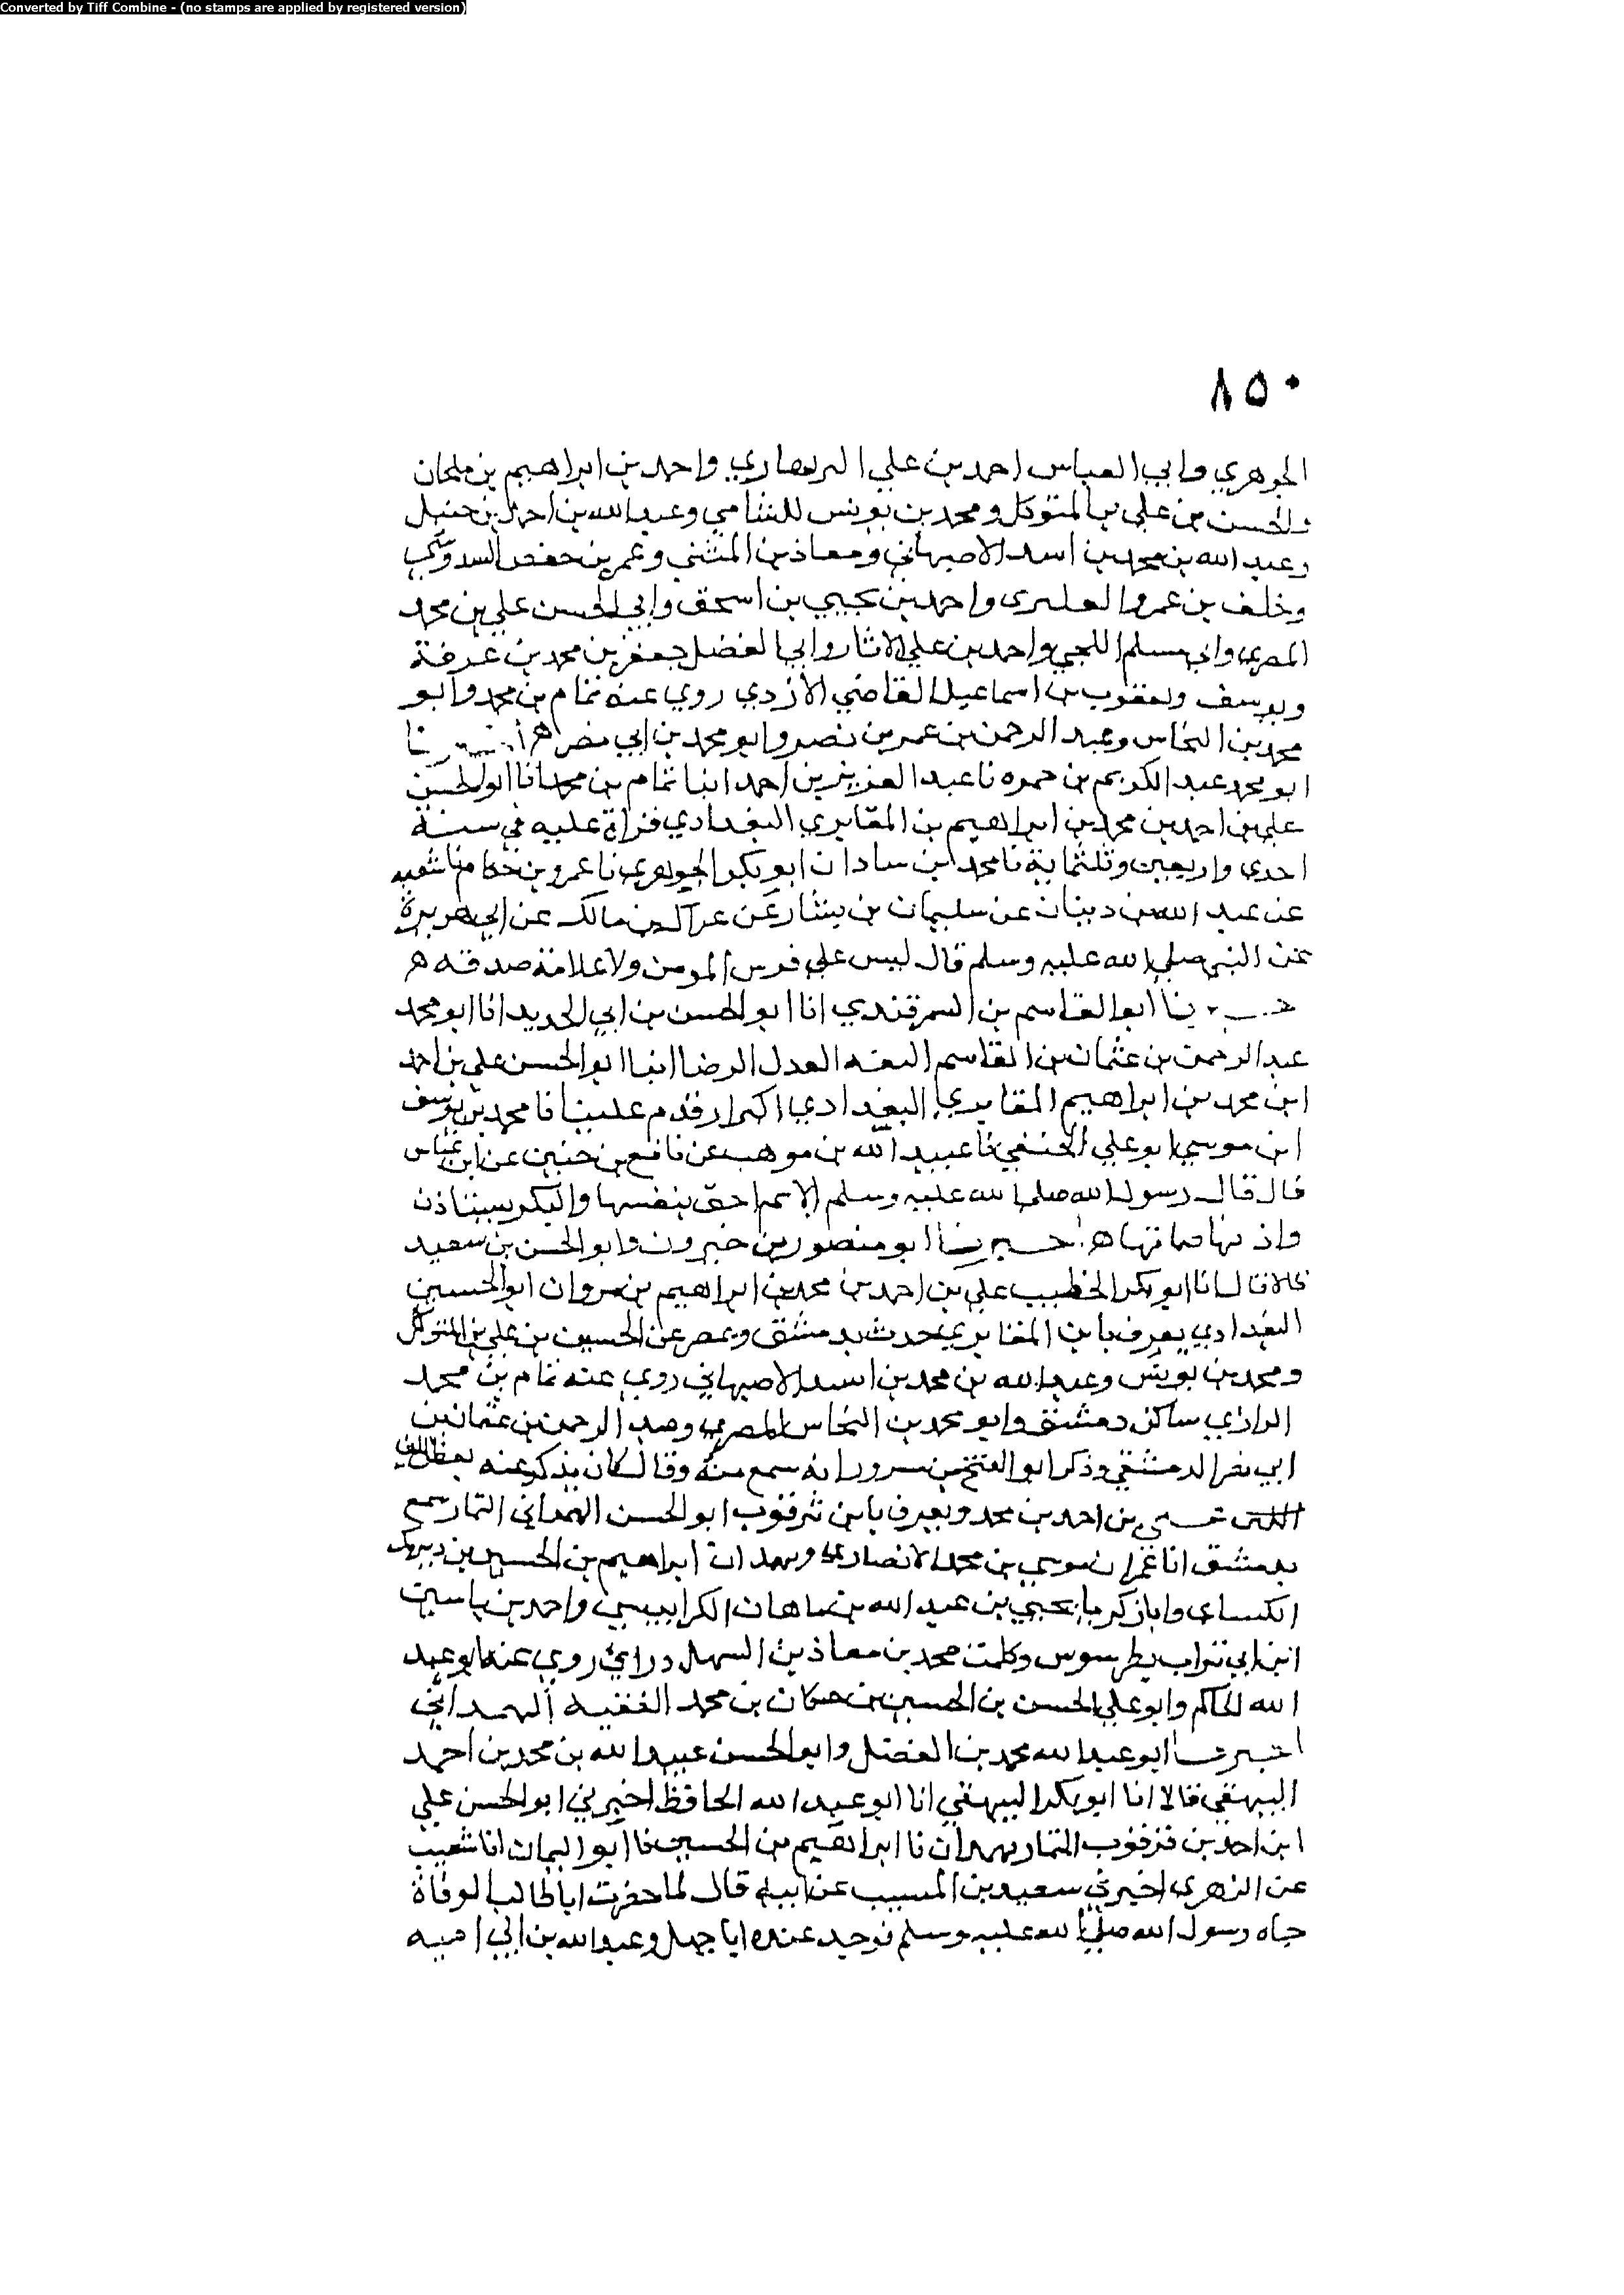 Converted by Tiff Combine - (no stamps are applied by registered version)
٨٥٠
الجوهري وابي العباس احمد بن علي البربهاري واحمد بن ابراهيم بن ملحان
والحسن بن علي بن المتوكل ومحمد بن يونس الشامي وعبد الله بن احمد بن حنبل
وعبد الله بن محمد بن اسد الاصبهاني ومعاذ بن المثني وعمر بن حفص السدوسي
وخلف بن عمرو العكبري واحمد بن يحيي بن اسحق وابي الحسن علي بن محمد
المصري وابي مسلم اللجي واحمد بن علي الاثار وابي الفضل جعفر بن محمد بن عرفة
ويوسف ويعقوب بن اسماعيل القاضي الازدي روي عنه تمام بن محمد وابو
محمد بن النحاس وعبد الرحمن بن عمر بن نصر وابو محمد بن ابي نصر ه نا
ابو محمد عبد الكريم بن حمزه نا عبد العزيز بن احمد انبا تمام بن محمد انا ابو الحسن
علي بن احمد بن محمد بن ابراهيم بن المقابري البغدادي قراة عليه في سنة
احدي واربعين وثلثماية نا محمد بن شادان ابو بكر الجوهري نا عمرو بن حكام نا شعبه
عن عبد الله بن دينار عن سليمان بن يشار عن عراك بن مالك عن ابي هريرة
عن النبي صلي الله عليه وسلم قال ليس علي فرس المومن ولا غلامة صدقه ه
نا ابو القاسم بن السمرقندي انا ابو الحسن بن ابي الحديد انا ابو محمد
عبد الرحمن بن عثمان بن القاسم العدل الرضا انبا ابو الحسن علي بن احمد
ابن محمد بن ابراهيم المقابري البغدادي قدم علينا نا محمد بن يوسف
ابن موسي ابو علي الحنفي نا عبيد الله بن موهب عن نافع بن جنين عن ابن عباس
قال قال رسول الله صلي الله عليه وسلم الايم احق بنفسها والبكر يستاذن
واذنها صماتها ه نا ابو منصور بن خيرون وابو الحسن بن سعيد
قالا قال انا ابو بكر الخطيب علي بن احمد بن محمد بن ابراهيم بن مروان ابو الحسين
البغدادي يعرف بابن المقابري يحدث بدمشق وبمصر عن الحسين بن علي بن المتوكل
ومحمد بن يونس وعبد الله بن محمد بن اسد الاصبهاني روي عنه تمام بن محمد
الرازي ساكن دمشق وابو محمد بن النحاس المصري وعبد الرحمن بن عثمان بن
ابي نصر الدمشقي وذكر ابو الفتح بن مسرور انه سمع منه وقال كان يذكر عنه بعض اللين
بن احمد بن محمد ويعرف بابن قرقوب ابو الحسن الهمداني التمار سمع
بدمشق ابا عمران موسي بن محمد الانصاري وبهمدان ابراهيم بن الحسين بن ديزيل
الكساي وابا زكريا يحيي بن عبد الله بن ماهان الكرابيسي واحمد بن ياسين
ابن ابي تراب بطرسوس ومحمد بن معاذ بن السهل روي عنه ابو عبد
الله الحاكم وابو علي الحسن بن الحسين بن حمكان بن محمد الفقيه الهمداني
اخبرنا ابو عبد الله محمد بن الفضل وابو الحسن عبيد الله بن محمد بن احمد
البيهقي قالا انا ابو بكر البيهقي انا ابو عبد الله الحافظ اخبرني ابو الحسن علي
ابن احمد بن قرقوب التمار بهمدان نا ابراهيم بن الحسين نا ابو اليمان انا شعيب
عن الزهري اخبرني سعيد بن المسيب عن ابيه قال لما حضرت ابا طالب الوفاة
جاه رسول الله صلي الله عليه وسلم فوجد عنده ابا جهل وعبد الله بن ابي اميه